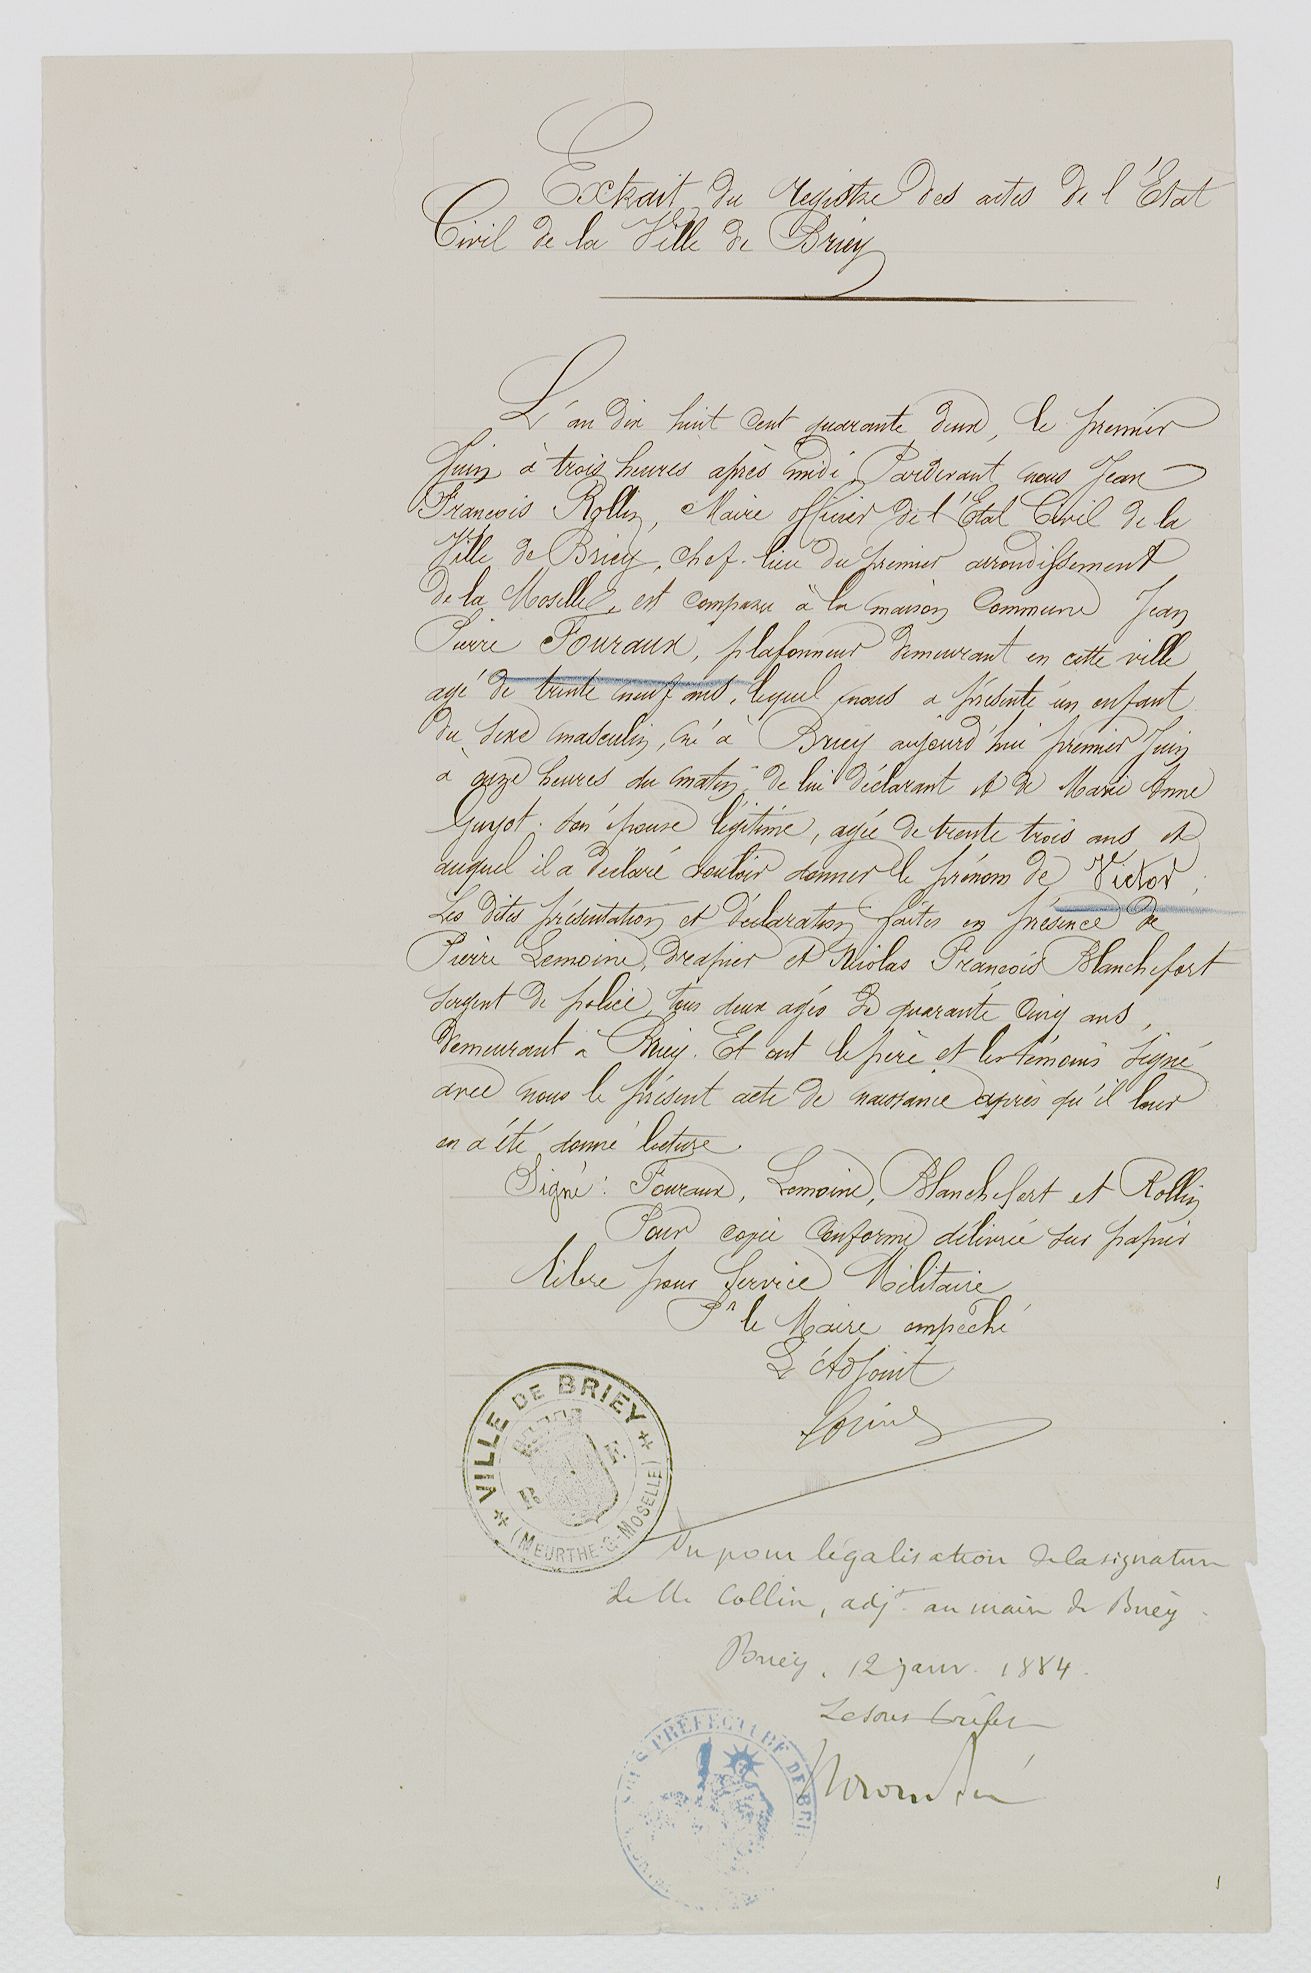 Extrait du registre des actes de l'Etat
Civil de la Ville de Briey
L'an dix huit cent quarante deux, le premier
Juin à trois heures après midi, Pardevant nous Jean
François Rollin, Maire officier de l'Etat Civil de la
Ville de Briey, chef-lieu du premier arrondissement
de la Moselle, est comparu à la maison Commune Jean
Pierre Fouraux, plafonneur demeurant en cette ville
agé de trente neuf ans, lequel nous a présenté un enfant
du sexe masculin, né à Briey aujourd'hui premier Juin
à onze heures du matin, de lui déclarant et de Marie Anne
Guyot son épouse légitime, agée de trente trois ans et
auquel il a déclaré vouloir donner le prénom de Victor;
Les dites présentation et déclaration faites en présence de
Pierre Lemoine, drapier et Nicolas François Blanchefort
sergent de police, tous deux agés de quarante cinq ans,
demeurant à Briey. Et ont le père et les témoins signé
avec nous le présent acte de naissance après qu'il leur
en a été donné lecture.
Signé: Fouraux, Lemoine, Blanchefort et Rollin
Pour copie conforme délivrée sur papier
libre pour Service Militaire
Pr le Maire empêché
L'Adjoint
VILLE DE BRIEY
R F
(MEURTHE-&-MOSELLE)
Vu pour légalisation de la signature
de M. Collin, adjt au maire de Briey.
Briey, 12 janv. 1884.
Le sous-préfet
SOUS-PRÉFECTURE DE